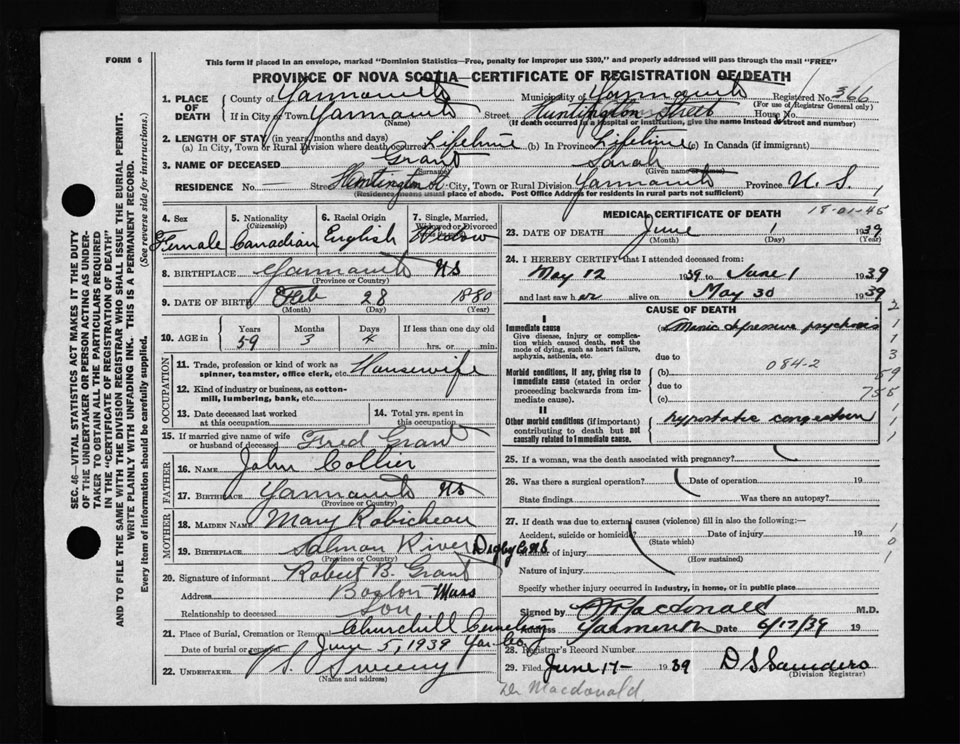 FORM 6
This form if placed in an envelope, marked "Dominion Statistics—Free, penalty for improper use $300," and properly addressed will pass through the mail "FREE"
PROVINCE OF NOVA SCOTIA—CERTIFICATE OF REGISTRATION OF DEATH
1. PLACE OF DEATH
County of Yarmouth Municipality of Yarmouth Registered No. 366
(For use of Registrar General only)
If in City or Town Yarmouth Street Huntington Street House No.
(Name) (If death occurred in a hospital or institution, give the name instead of street and number)
2. LENGTH OF STAY (in years, months and days)
(a) In City, Town or Rural Division where death occurred Lifetime (b) In Province Lifetime (c) In Canada (if immigrant)
3. NAME OF DECEASED Grant Sarah
(Surname) (Given name or names)
RESIDENCE No. — Street Huntington St City, Town or Rural Division Yarmouth Province N. S.
(Residence means usual place of abode. Post Office Address for residents in rural parts not sufficient)
4. Sex Female
5. Nationality (Citizenship) Canadian
6. Racial Origin English
7. Single, Married, Widowed or Divorced Widow
8. BIRTHPLACE Yarmouth NS
(Province or Country)
9. DATE OF BIRTH Feb 28 1880
(Month) (Day) (Year)
10. AGE in Years Months Days If less than one day
59 3 4 hrs. or min.
OCCUPATION
11. Trade, profession or kind of work as spinner, teamster, office clerk, etc. Housewife
12. Kind of industry or business, as cotton-mill, lumbering, bank, etc.
13. Date deceased last worked at this occupation
14. Total yrs. spent in this occupation
15. If married give name of wife or husband of deceased Fred Grant
FATHER
16. NAME John Collier
17. BIRTHPLACE Yarmouth NS
(Province or Country)
MOTHER
18. MAIDEN NAME Mary Robicheau
19. BIRTHPLACE Salmon River Digby Co NS
(Province or Country)
20. Signature of informant Robert B. Grant
Address Boston Mass
Relationship to deceased Son
21. Place of Burial, Cremation or Removal Churchill Cemetery Yar Co
Date of burial or removal June 5, 1939
22. UNDERTAKER V S Sweeny
(Name and address)
MEDICAL CERTIFICATE OF DEATH
18-01-45
23. DATE OF DEATH June 1 1939
(Month) (Day) (Year)
24. I HEREBY CERTIFY that I attended deceased from:
May 12 1939 to June 1 1939
and last saw her alive on May 30 1939
CAUSE OF DEATH
I
Immediate cause
Give disease, injury or complication which caused death, not the mode of dying, such as heart failure, asphyxia, asthenia, etc.
(a) Manic depressive psychosis
due to
Morbid conditions, if any, giving rise to immediate cause (stated in order proceeding backwards from immediate cause).
(b) 084-2
due to
(c)
II
Other morbid conditions (if important) contributing to death but not causally related to immediate cause.
hypostatic congestion
25. If a woman, was the death associated with pregnancy?
26. Was there a surgical operation? Date of operation 19
State findings Was there an autopsy?
27. If death was due to external causes (violence) fill in also the following:—
Accident, suicide or homicide? Date of injury 19
(State which)
Manner of injury
(How sustained)
Nature of injury
Specify whether injury occurred in industry, in home, or in public place
Signed by Macdonald M.D.
Address Yarmouth Date 6/17/39 19
28. Registrar's Record Number
29. Filed June 17- 1939 D S Saunders
(Division Registrar)
Dr Macdonald
SEC. 46—VITAL STATISTICS ACT MAKES IT THE DUTY
OF THE UNDERTAKER OR PERSON ACTING AS UNDER-
TAKER TO OBTAIN ALL THE PARTICULARS REQUIRED
IN THE "CERTIFICATE OF REGISTRATION OF DEATH"
AND TO FILE THE SAME WITH THE DIVISION REGISTRAR WHO SHALL ISSUE THE BURIAL PERMIT.
WRITE PLAINLY WITH UNFADING INK. THIS IS A PERMANENT RECORD.
Every item of information should be carefully supplied. (See reverse side for instructions.)